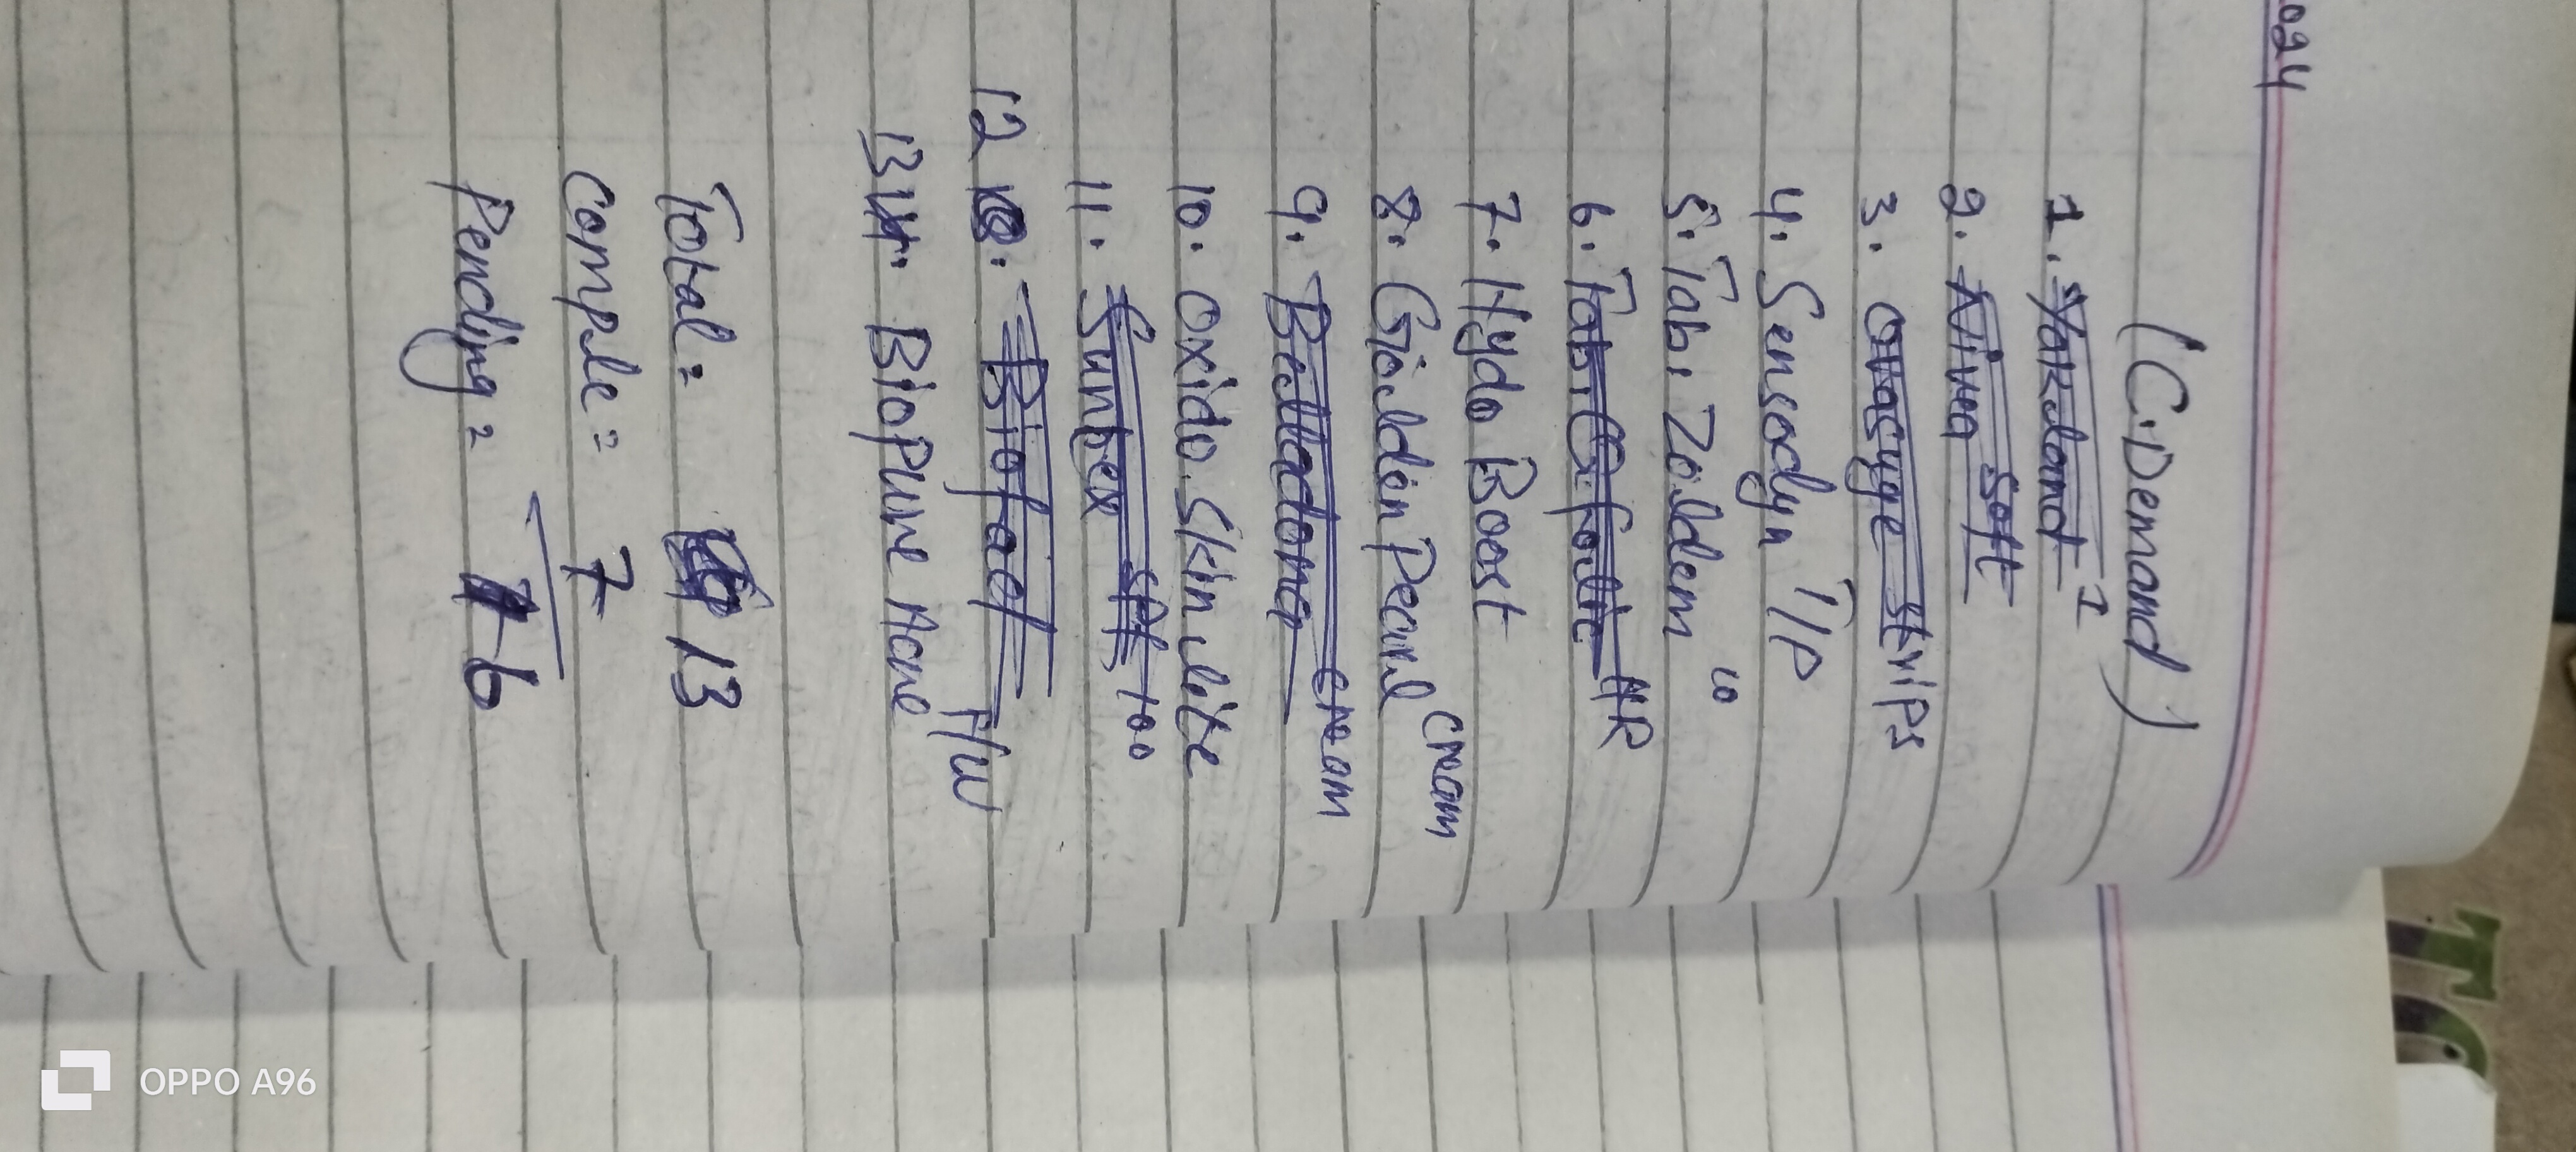 024
(C.Demand)
1. Yardland 1
2. Nivea Soft
3. strips
4. Sensodyn T/P
5. Tab. Zoldem 10
6. Tab. forte MR
7. Hydo Boost
8. Golden Pearl Cream
9. Belladona Cream
10. Oxido.Skin lite
11. Sunbex 100
12. Biofad F/W
13. BioPure Acne
Total = 13
Comple = 7
Pending = 6
OPPO A96